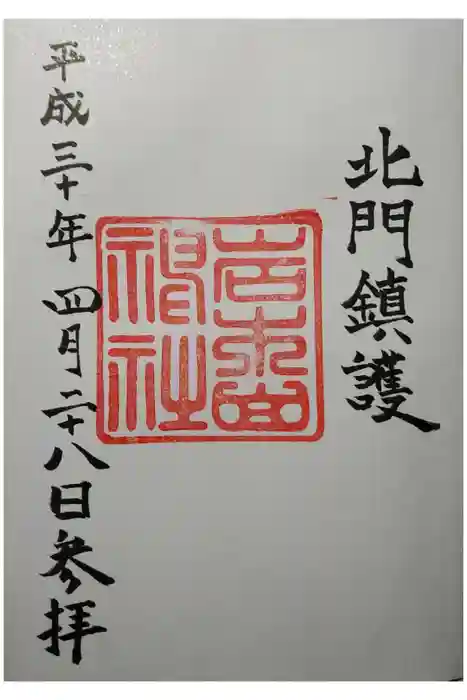 北門鎮護
岩木山
神社
平成三十年四月二十八日参拝